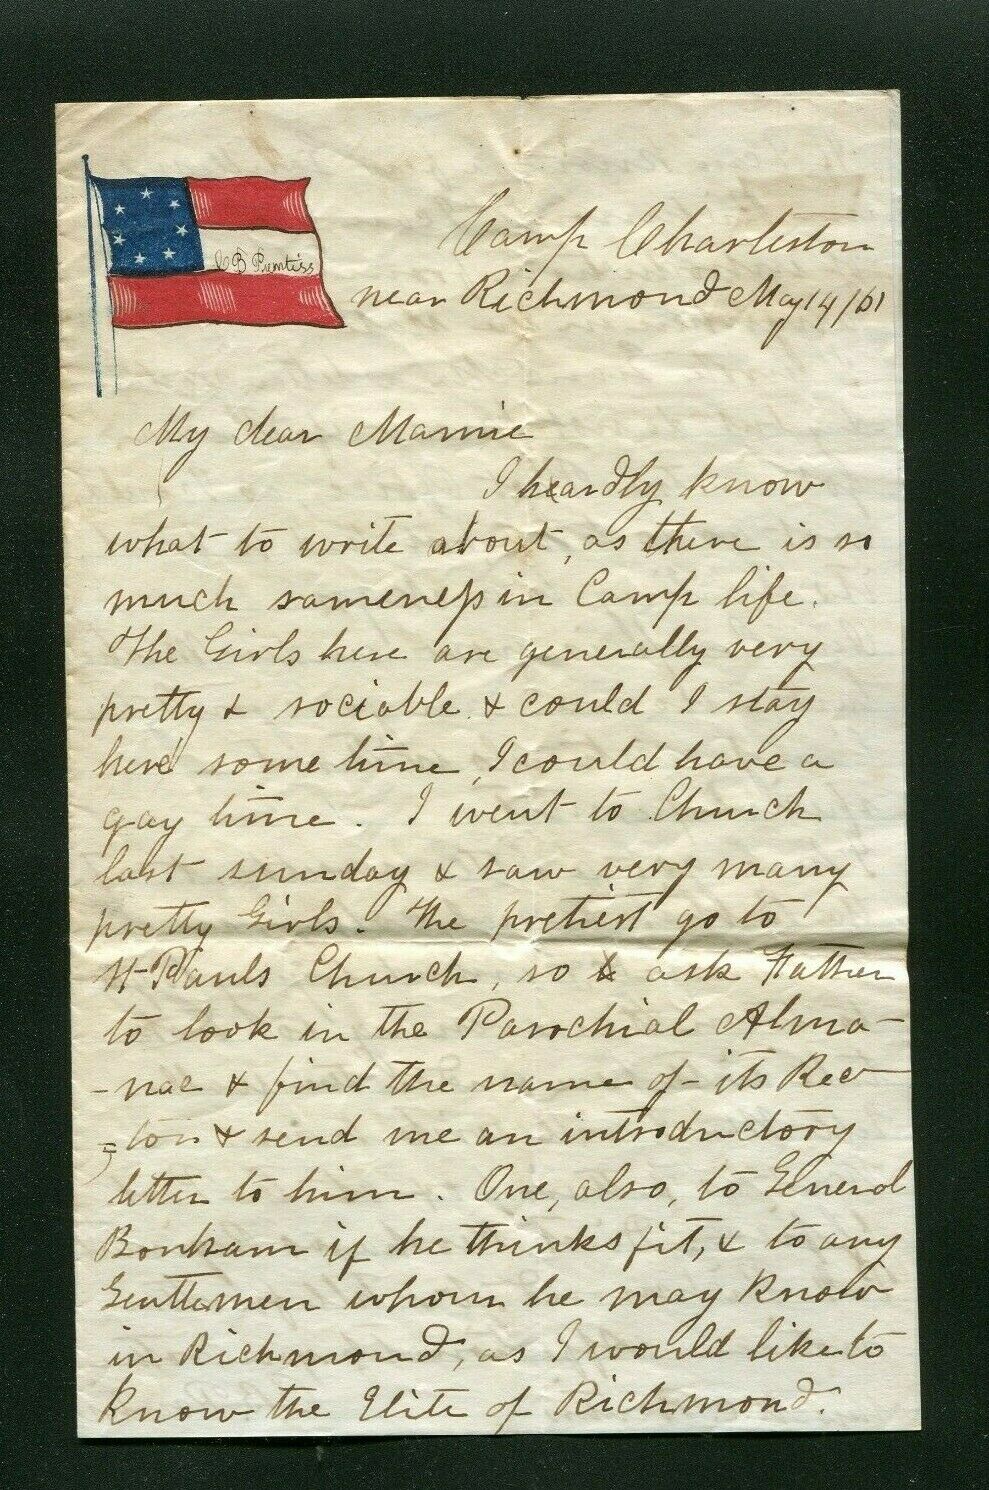 C B Prentiss
Camp Charleston
near Richmond May 14/61
My dear Mamie
I heardly know
what to write about, as there is so
much sameness in Camp life.
The Girls here are generally very
pretty & sociable & could I stay
here some time, I could have a
gay time. I went to Church
last sunday & saw very many
pretty Girls. The pretiest go to
St Pauls Church, so ask Father
to look in the Parochial Alma-
-nac & find the name of its Rec-
-tor & send me an introductory
letter to him. One, also, to General
Bonham if he thinks fit, & to any
Gentlemen whom he may know
in Richmond, as I would like to
know the Elite of Richmond.